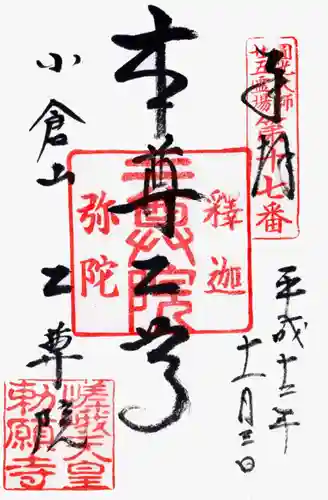 奉拝
圓光大師
廿五霊場
第十七番
平成十二年
十一月三日
本尊二尊
釋迦
弥陀
二尊院
小倉山 二尊院
嵯峨天皇
勅願寺